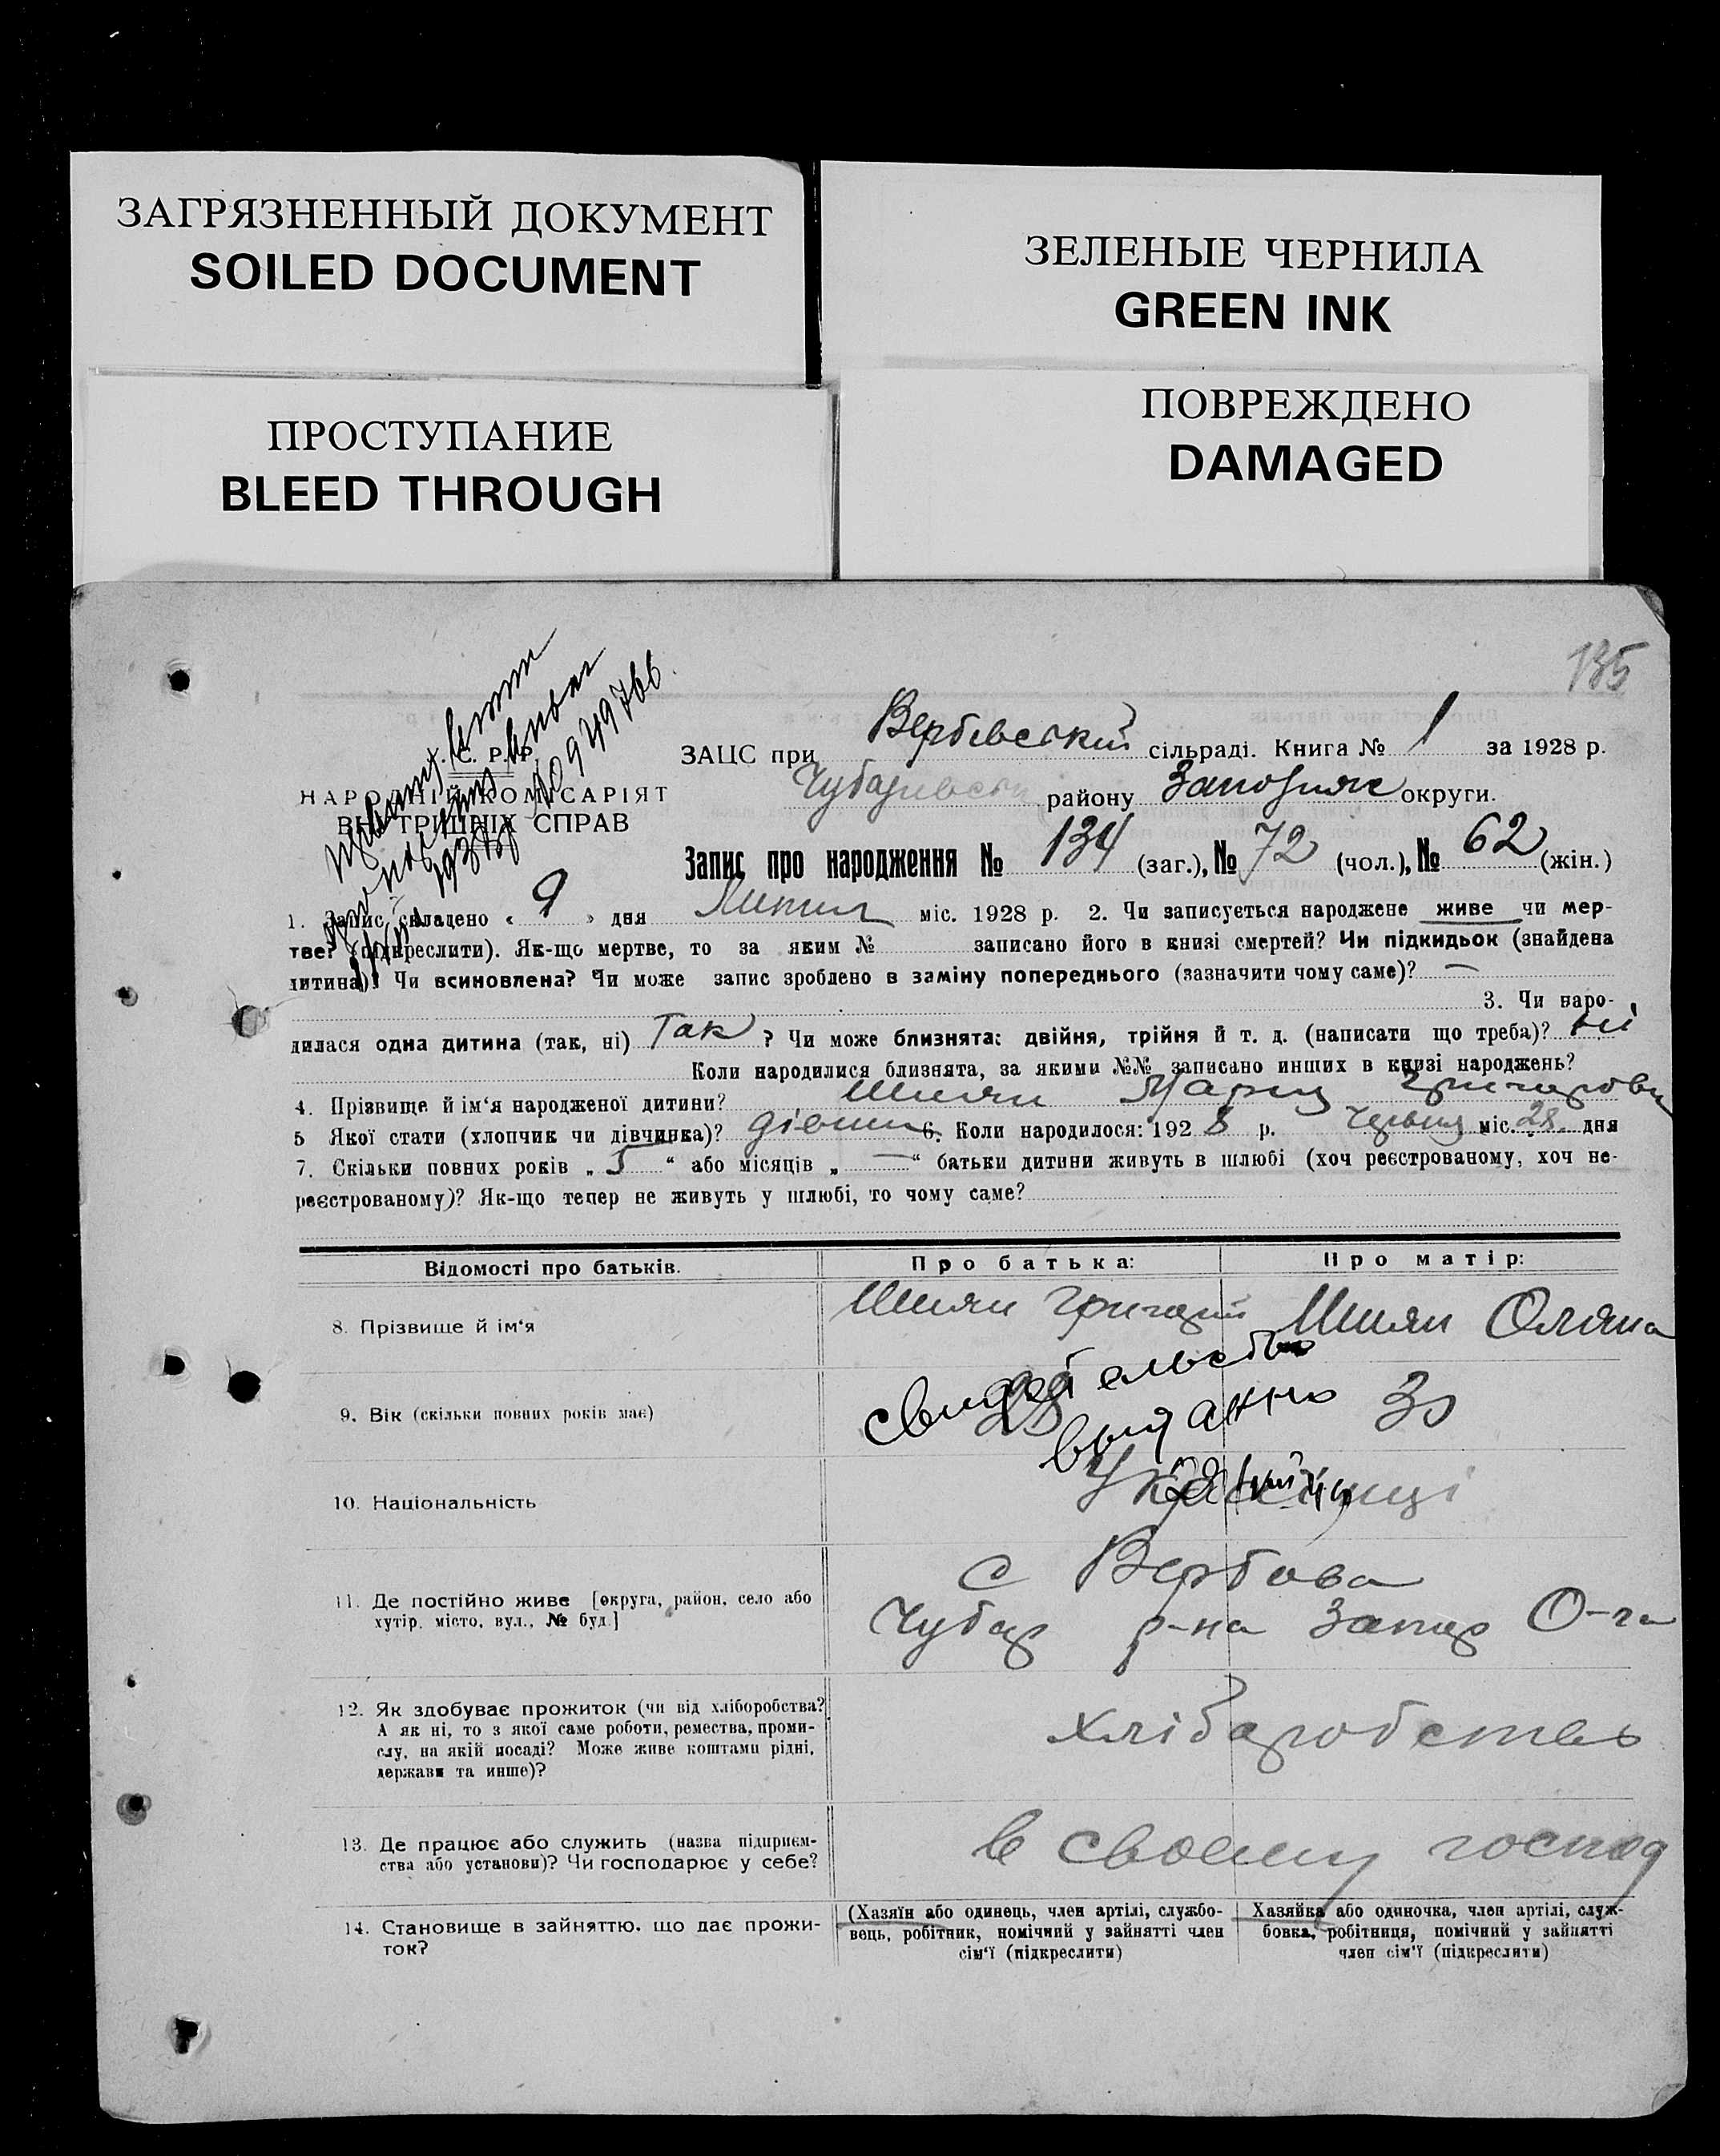 ЗАГРЯЗНЕННЫЙ ДОКУМЕНТ
SOILED DOCUMENT
ЗЕЛЕНЫЕ ЧЕРНИЛА
GREEN INK
ПРОСТУПАНИЕ
BLEED THROUGH
ПОВРЕЖДЕНО
DAMAGED
135
С. Р. Р.
НАРОДНІЙ КОМІСАРІЯТ
ВНУТРІШНІХ СПРАВ
ЗАЦС при Вербівській сільраді. Книга № 1 за 1928 р.
Чубарівськ району Запоріжж округи.
Запис про народження № 134 (заг.), № 72 (чол.), № 62 (жін.)
1. Запис складено « 9 » дня Липня міс. 1928 р. 2. Чи записується народжене живе чи мер-
тве? (підкреслити). Як-що мертве, то за яким № записано його в книзі смертей? Чи підкидьок (знайдена
дитина)? Чи всиновлена? Чи може запис зроблено в заміну попереднього (зазначити чому саме)? —
3. Чи наро-
дилася одна дитина (так, ні) Так ? Чи може близнята: двійня, трійня й т. д. (написати що треба)? ні
Коли народилися близнята, за якими №№ записано инших в книзі народжень?
4. Прізвище й ім'я народженої дитини? Шиян Марія Григоровн
5 Якої стати (хлопчик чи дівчинка)? дівчин 6. Коли народилося: 192 8 р. Червня міс. 28 дня
7. Скільки повних років „ 5 “ або місяців „ — “ батьки дитини живуть в шлюбі (хоч реєстрованому, хоч не-
реєстрованому)? Як-що тепер не живуть у шлюбі, то чому саме?
Відомості про батьків.
Про батька:
Про матір:
8. Прізвище й ім'я
Шиян Григорій
Шиян Оляна
9. Вік (скільки повних років має)
28
30
свидетельство
выданно
10. Національність
Українці
11. Де постійно живе [округа, район, село або
хутір, місто, вул., № буд.]
с Вербова
Чубар р-на Запор О-га
12. Як здобуває прожиток (чи від хліборобства?
А як ні, то з якої саме роботи, ремества, проми-
слу, на якій посаді? Може живе коштами рідні,
держави та инше)?
хліборобство
13. Де працює або служить (назва підприєм-
ства або установи)? Чи господарює у себе?
в своему господ
14. Становище в зайняттю, що дає прожи-
ток?
(Хазяїн або одинець, член артілі, службо-
вець, робітник, помічний у зайнятті член
сім'ї (підкреслити)
Хазяйка або одиночка, член артілі, служ-
бовка, робітниця, помічний у зайнятті
член сім'ї (підкреслити)